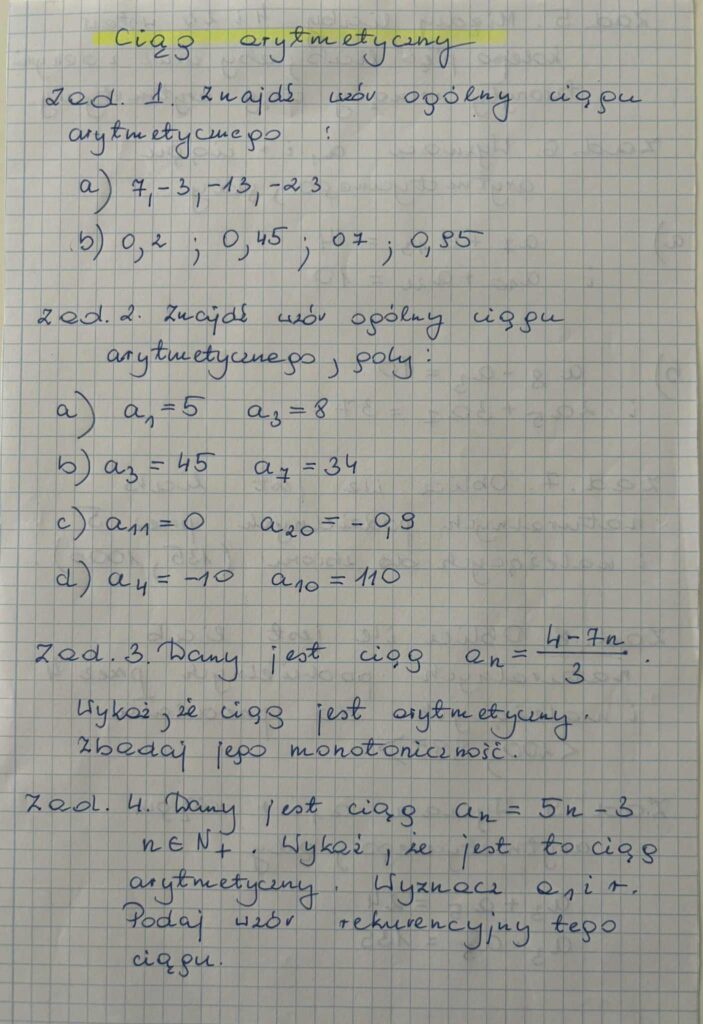 Ciąg arytmetyczny
Zad. 1. Znajdź wzór ogólny ciągu
arytmetycznego :
a) 7, -3, -13, -23
b) 0,2 ; 0,45 ; 07 ; 0,95
Zad. 2. Znajdź wzór ogólny ciągu
arytmetycznego, gdy :
a) a₁ = 5 a₃ = 8
b) a₃ = 45 a₇ = 34
c) a₁₁ = 0 a₂₀ = - 0,9
d) a₄ = -10 a₁₀ = 110
Zad. 3. Dany jest ciąg aₙ = (4-7n)/3 .
Wykaż, że ciąg jest arytmetyczny.
Zbadaj jego monotoniczność.
Zad. 4. Dany jest ciąg aₙ = 5n - 3
n ∈ N₊ . Wykaż, że jest to ciąg
arytmetyczny. Wyznacz a₁ i r.
Podaj wzór rekurencyjny tego
ciągu.